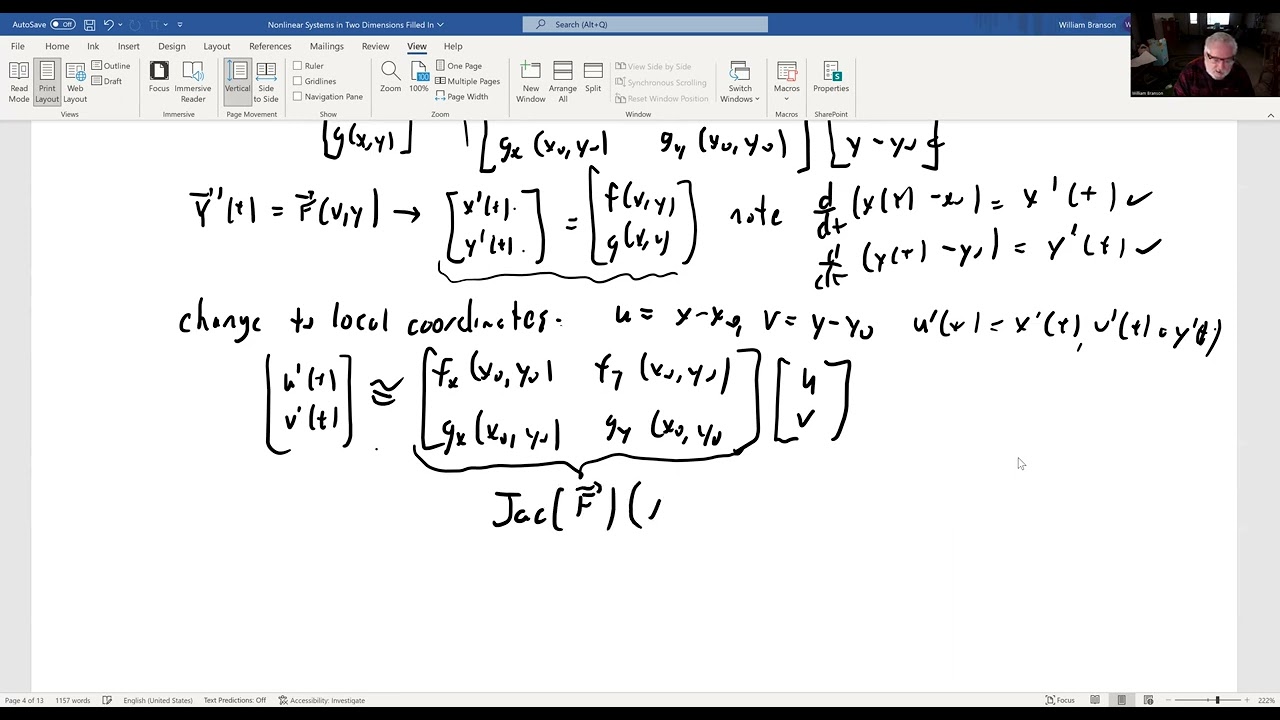 AutoSave Off Nonlinear Systems in Two Dimensions Filled In Search (Alt+Q) William Branson
File Home Ink Insert Design Layout References Mailings Review View Help
Read Mode Print Layout Web Layout Outline Draft Focus Immersive Reader Vertical Side to Side Ruler Gridlines Navigation Pane Zoom 100% One Page Multiple Pages Page Width New Window Arrange All Split View Side by Side Synchronous Scrolling Reset Window Position Switch Windows Macros Properties
Views Immersive Page Movement Show Zoom Window Macros SharePoint
William Branson
[g(x,y)] [gx (x0,y0) gy (x0,y0)] [y - y0]
Y'(t) = F(x,y) → [x'(t) y'(t)] = [f(x,y) g(x,y)] note d/dt (x(t) - x0) = x'(t) ✓
d/dt (y(t) - y0) = y'(t) ✓
change to local coordinates. u = x-x0, v = y-y0 u'(t) = x'(t), v'(t) = y'(t)
[u'(t) ≈ [fx (x0,y0) fy (x0,y0)] [u
v'(t)] gx (x0,y0) gy (x0,y0 v]
Jac(F)(
Page 4 of 13 1157 words English (United States) Text Predictions: Off Accessibility: Investigate Focus 222%